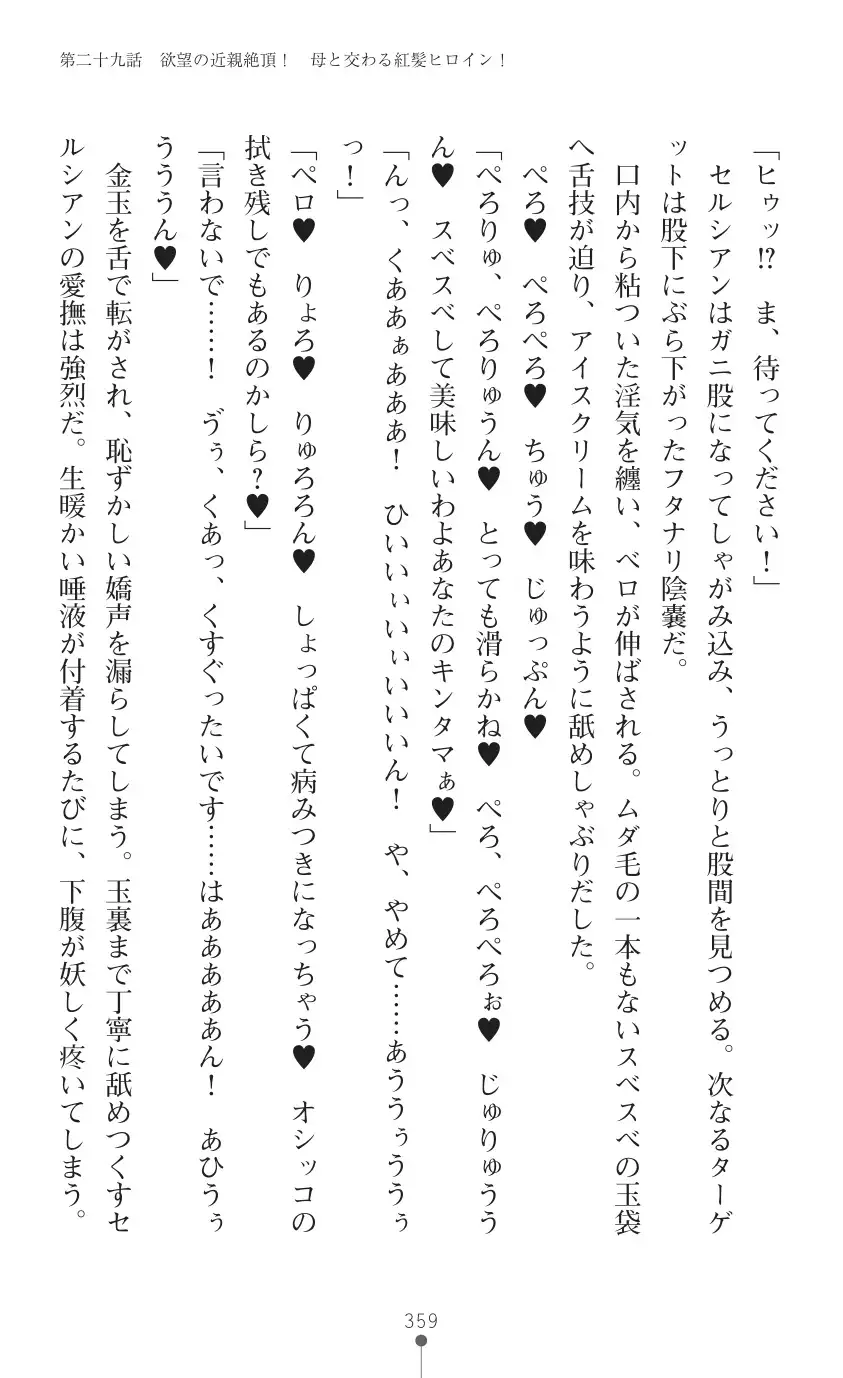 第二十九話　欲望の近親絶頂！　母と交わる紅髪ヒロイン！
「ヒゥッ!?　ま、待ってください！」
　セルシアンはガニ股になってしゃがみ込み、うっとりと股間を見つめる。次なるターゲ
ットは股下にぶら下がったフタナリ陰嚢だ。
　口内から粘ついた淫気を纏い、ベロが伸ばされる。ムダ毛の一本もないスベスベの玉袋
へ舌技が迫り、アイスクリームを味わうように舐めしゃぶりだした。
　ぺろ♥　ぺろぺろ♥　ちゅう♥　じゅっぷん♥
「ぺろりゅ、ぺろりゅうん♥　とっても滑らかね♥　ぺろ、ぺろぺろぉ♥　じゅりゅうう
ん♥　スベスベして美味しいわよあなたのキンタマぁ♥」
「んっ、くああぁあああ！　ひいいぃいぃいいいん！　や、やめて……あううぅううぅ
っ！」
「ペロ♥　りょろ♥　りゅろろん♥　しょっぱくて病みつきになっちゃう♥　オシッコの
拭き残しでもあるのかしら？♥」
「言わないで……！　ゔぅ、くあっ、くすぐったいです……はああああああん！　あひうぅ
うううん♥」
　金玉を舌で転がされ、恥ずかしい嬌声を漏らしてしまう。玉裏まで丁寧に舐めつくすセ
ルシアンの愛撫は強烈だ。生暖かい唾液が付着するたびに、下腹が妖しく疼いてしまう。
359